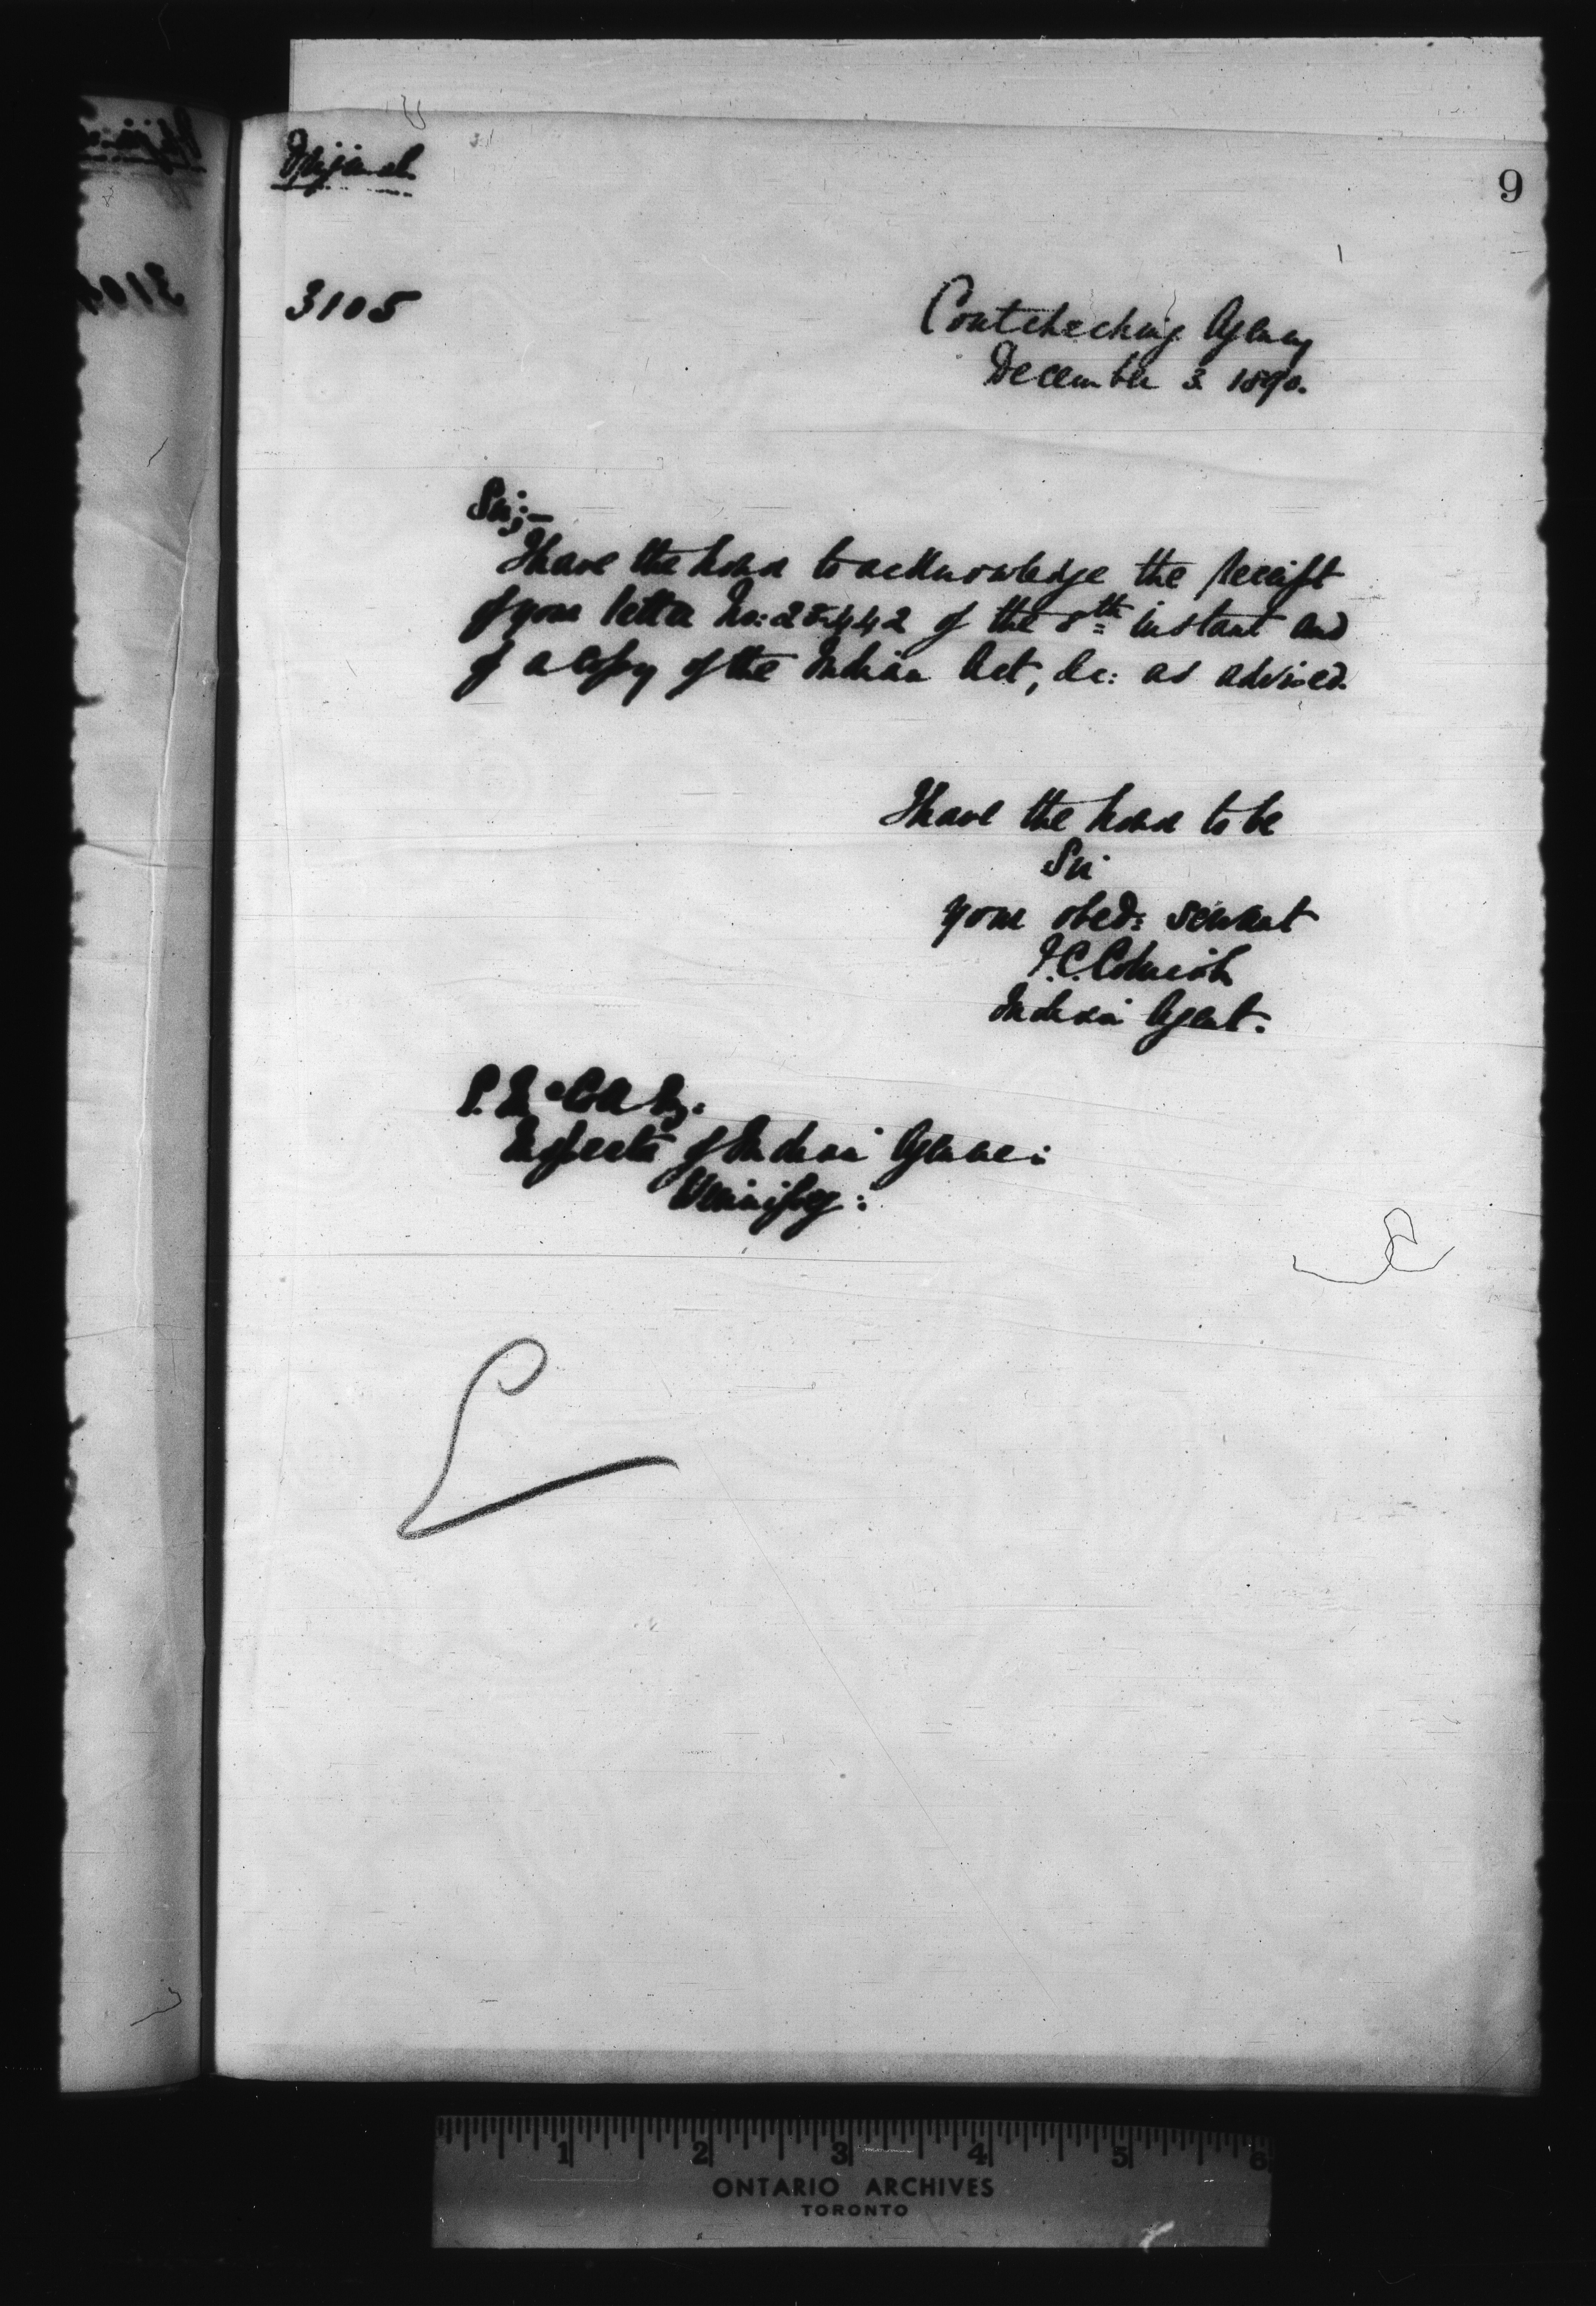 Original
9
3105
Coutcheching Agency
December 3. 1890.
Sir;—
I have the honor to acknowledge the receipt
of your letter No: 25442 of the 8th instant and
of a copy of the Indian Act, &c: as advised.
I have the honor to be
Sir
your obed: servant
F.C. Cornish
Indian Agent.
E. McColl Esq.
Inspector of Indian Agencies
Winnipeg:
1 2 3 4 5 6
ONTARIO ARCHIVES
TORONTO